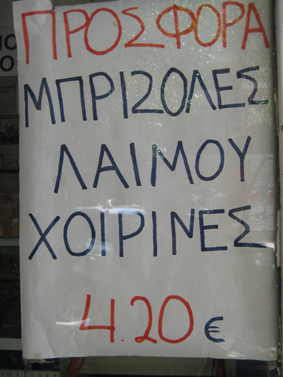 ΠΡΟΣΦΟΡΑ
ΜΠΡΙΖΟΛΕΣ
ΛΑΙΜΟΥ
ΧΟΙΡΙΝΕΣ
4.20 €